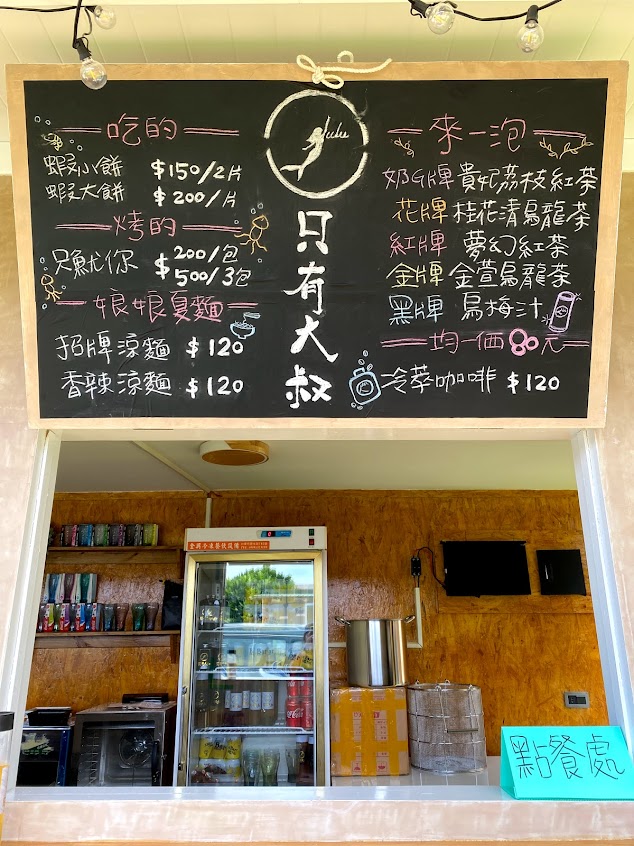 吃的
蝦小餅 $150/2片
蝦大餅 $200/片
烤的
只魷你 $200/包
$500/3包
娘娘夏麵
招牌涼麵 $120
香辣涼麵 $120
Julu
只有大叔
來一泡
奶G牌 貴妃荔枝紅茶
花牌 桂花清烏龍茶
紅牌 夢幻紅茶
金牌 金萱烏龍茶
黑牌 烏梅汁
均一価80元
冷萃咖啡 $120
點餐處